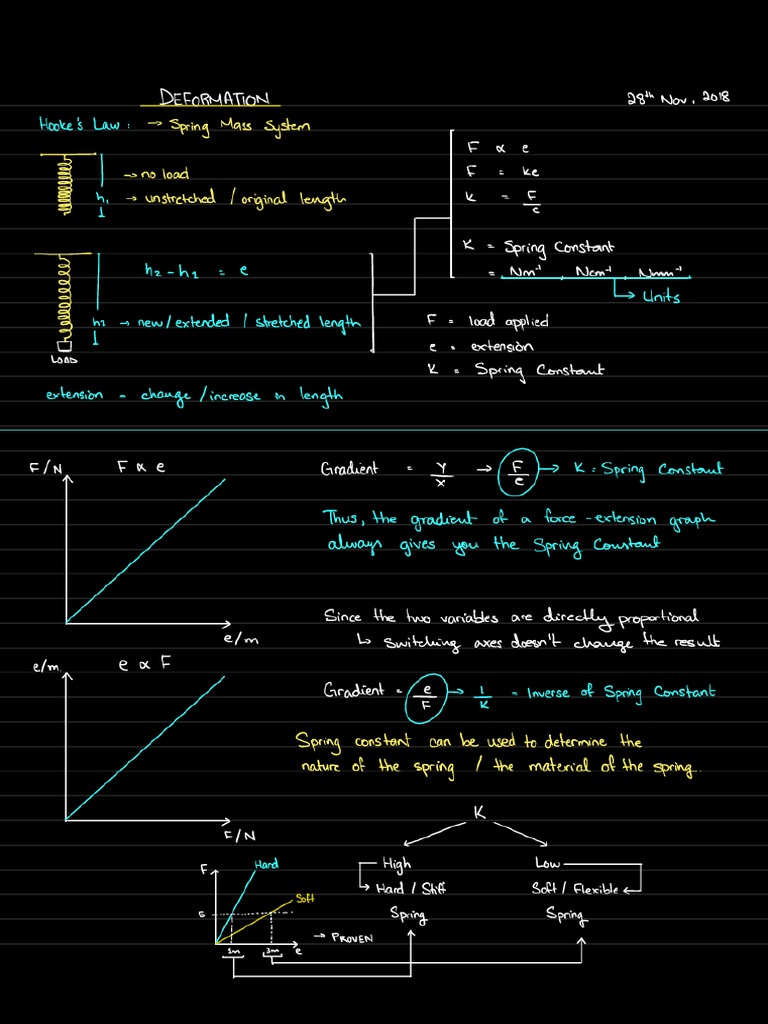 DEFORMATION
28th Nov, 2018
Hooke's Law: → Spring Mass System
→ no load
h1 → unstretched / original length
h2 - h1 = e
h2 → new / extended / stretched length
LOAD
extension = change / increase in length
F ∝ e
F = ke
K = F/e
K = Spring Constant
= Nm⁻¹ Ncm⁻¹ Nmm⁻¹
→ Units
F = load applied
e = extension
K = Spring Constant
F/N
F ∝ e
e/m
Gradient = Y/x → F/e → K = Spring Constant
Thus, the gradient of a force-extension graph
always gives you the Spring Constant
Since the two variables are directly proportional
↳ switching axes doesn't change the result
e/m
e ∝ F
F/N
Gradient = e/F → 1/K = Inverse of Spring Constant
Spring constant can be used to determine the
nature of the spring / the material of the spring.
K
High
Low
Hard / Stiff
Soft / Flexible
Spring
Spring
F
Hard
Soft
5
1m
3m
e
→ PROVEN